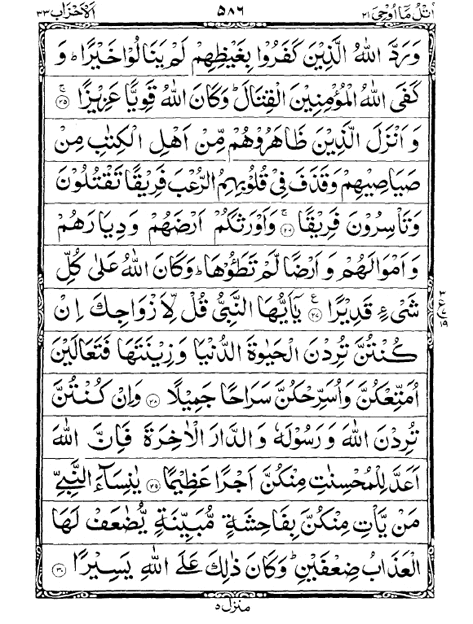 اُتْلُ مَآ اُوْحِيَ ٢١ ٥٨٦ اَلْاَحْزَاب ٣٣
وَرَدَّ اللّٰهُ الَّذِيْنَ كَفَرُوْا بِغَيْظِهِمْ لَمْ يَنَالُوْا خَيْرًا ؕ وَ
كَفَى اللّٰهُ الْمُؤْمِنِيْنَ الْقِتَالَ ؕ وَكَانَ اللّٰهُ قَوِيًّا عَزِيْزًا
وَ اَنْزَلَ الَّذِيْنَ ظَاهَرُوْهُمْ مِّنْ اَهْلِ الْكِتٰبِ مِنْ
صَيَاصِيْهِمْ وَقَذَفَ فِيْ قُلُوْبِهِمُ الرُّعْبَ فَرِيْقًا تَقْتُلُوْنَ
وَتَاْسِرُوْنَ فَرِيْقًا وَاَوْرَثَكُمْ اَرْضَهُمْ وَ دِيَارَهُمْ
وَاَمْوَالَهُمْ وَ اَرْضًا لَّمْ تَطَئُوْهَا ؕ وَكَانَ اللّٰهُ عَلٰى كُلِّ
شَيْءٍ قَدِيْرًا يٰٓاَيُّهَا النَّبِيُّ قُلْ لِّاَزْوَاجِكَ اِنْ
كُنْتُنَّ تُرِدْنَ الْحَيٰوةَ الدُّنْيَا وَ زِيْنَتَهَا فَتَعَالَيْنَ
اُمَتِّعْكُنَّ وَاُسَرِّحْكُنَّ سَرَاحًا جَمِيْلًا وَاِنْ كُنْتُنَّ
تُرِدْنَ اللّٰهَ وَ رَسُوْلَهٗ وَ الدَّارَ الْاٰخِرَةَ فَاِنَّ اللّٰهَ
اَعَدَّ لِلْمُحْسِنٰتِ مِنْكُنَّ اَجْرًا عَظِيْمًا يٰنِسَآءَ النَّبِيِّ
مَنْ يَّاْتِ مِنْكُنَّ بِفَاحِشَةٍ مُّبَيِّنَةٍ يُّضٰعَفْ لَهَا
الْعَذَابُ ضِعْفَيْنِ ؕ وَكَانَ ذٰلِكَ عَلَى اللّٰهِ يَسِيْرًا
منزل ٥